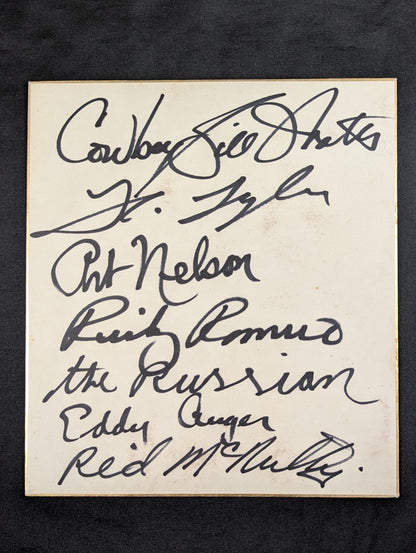 Cowboy Bill Watts
Art Nelson
Ricky Romero
the Russian
Eddy Auger
Red McNulty.